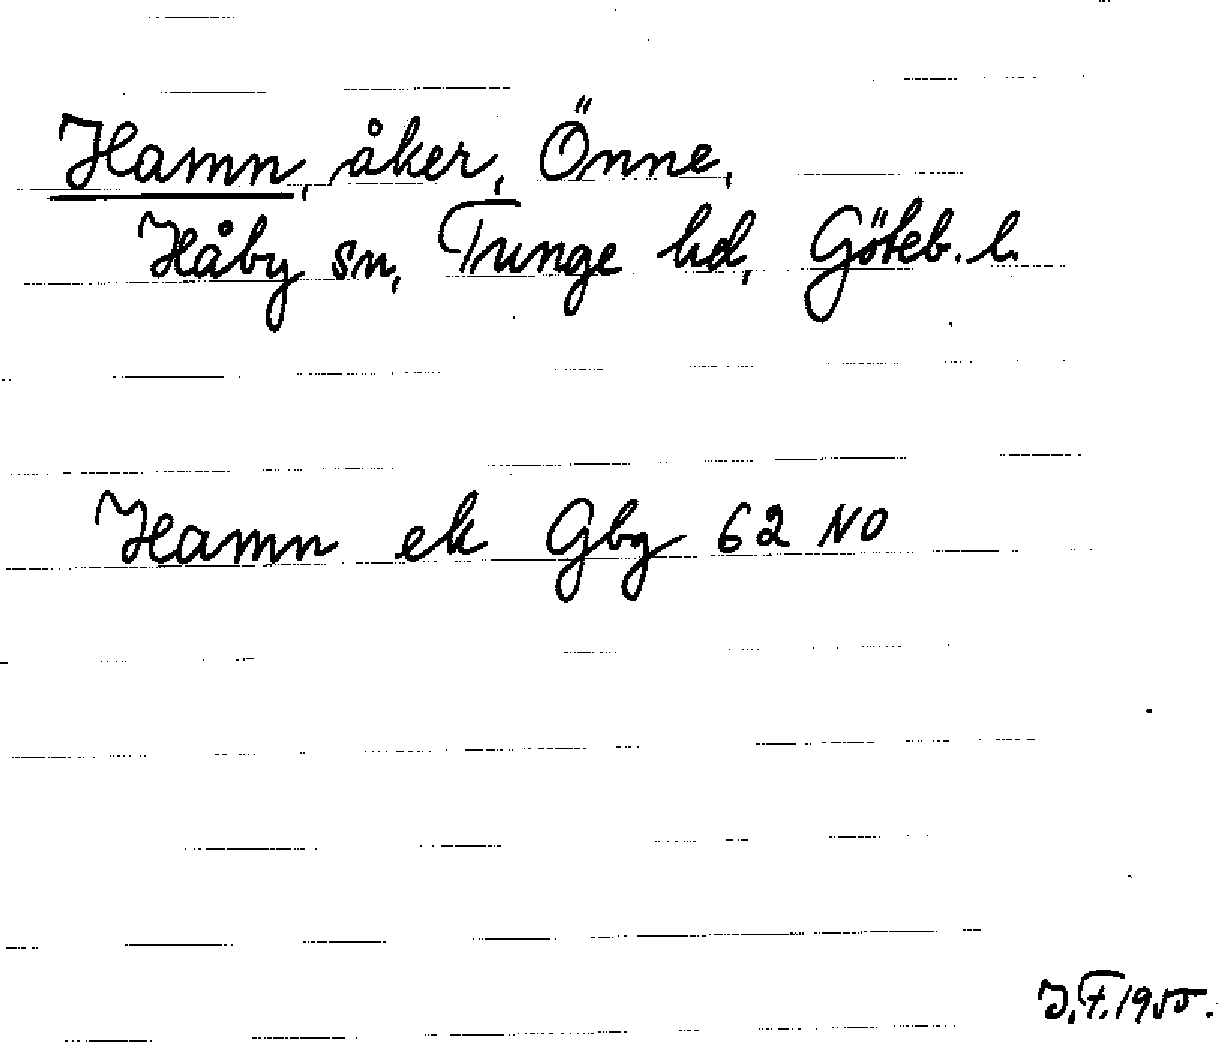 Hamn, åker, Önne,
Håby sn, Tunge hd, Göteb. l.
Hamn ek Gbg 62 NO
J.F. 1955.